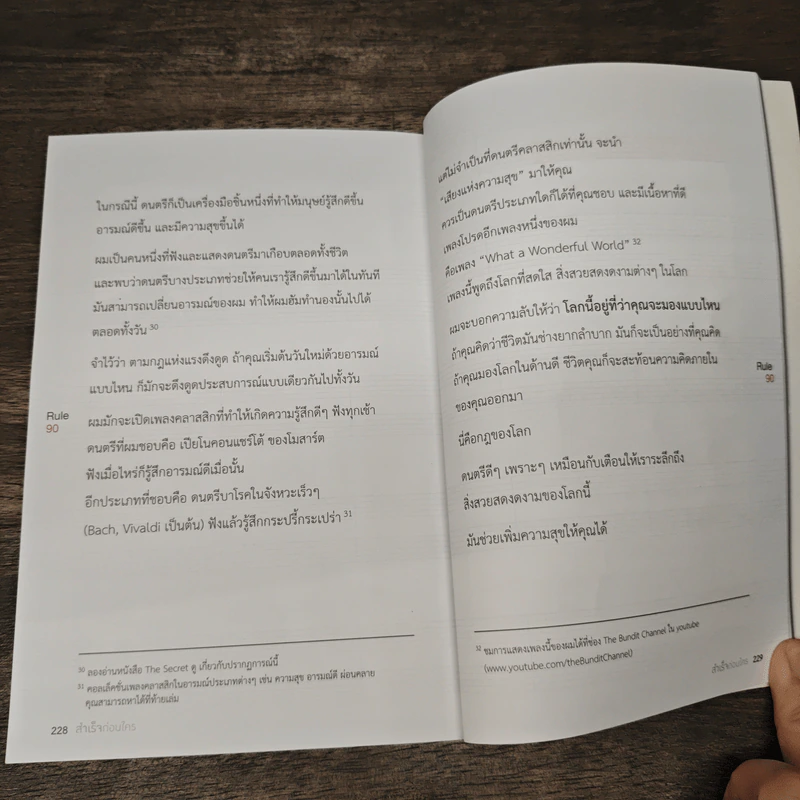 ในกรณีนี้ ดนตรีก็เป็นเครื่องมือชิ้นหนึ่งที่ทำให้มนุษย์รู้สึกดีขึ้น
อารมณ์ดีขึ้น และมีความสุขขึ้นได้
ผมเป็นคนหนึ่งที่ฟังและแสดงดนตรีมาเกือบตลอดทั้งชีวิต
และพบว่าดนตรีบางประเภทช่วยให้คนเรารู้สึกดีขึ้นมาได้ในทันที
มันสามารถเปลี่ยนอารมณ์ของผม ทำให้ผมฮัมทำนองนั้นไปได้
ตลอดทั้งวัน 30
จำไว้ว่า ตามกฎแห่งแรงดึงดูด ถ้าคุณเริ่มต้นวันใหม่ด้วยอารมณ์
แบบไหน ก็มักจะดึงดูดประสบการณ์แบบเดียวกันไปทั้งวัน
Rule
90
ผมมักจะเปิดเพลงคลาสสิกที่ทำให้เกิดความรู้สึกดีๆ ฟังทุกเช้า
ดนตรีที่ผมชอบคือ เปียโนคอนแชร์โต้ ของโมสาร์ต
ฟังเมื่อไหร่ก็รู้สึกอารมณ์ดีเมื่อนั้น
อีกประเภทที่ชอบคือ ดนตรีบาโรคในจังหวะเร็วๆ
(Bach, Vivaldi เป็นต้น) ฟังแล้วรู้สึกกระปรี้กระเปร่า 31
30 ลองอ่านหนังสือ The Secret ดู เกี่ยวกับปรากฏการณ์นี้
31 คอลเล็คชั่นเพลงคลาสสิกในอารมณ์ประเภทต่างๆ เช่น ความสุข อารมณ์ดี ผ่อนคลาย
คุณสามารถหาได้ที่ท้ายเล่ม
228 สำเร็จก่อนใคร
แต่ไม่จำเป็นที่ดนตรีคลาสสิกเท่านั้น จะนำ
“เสียงแห่งความสุข” มาให้คุณ
ควรเป็นดนตรีประเภทใดก็ได้ที่คุณชอบ และมีเนื้อหาที่ดี
เพลงโปรดอีกเพลงหนึ่งของผม
คือเพลง “What a Wonderful World” 32
เพลงนี้พูดถึงโลกที่สดใส สิ่งสวยสดงดงามต่างๆ ในโลก
ผมจะบอกความลับให้ว่า โลกนี้อยู่ที่ว่าคุณจะมองแบบไหน
ถ้าคุณคิดว่าชีวิตมันช่างยากลำบาก มันก็จะเป็นอย่างที่คุณคิด
ถ้าคุณมองโลกในด้านดี ชีวิตคุณก็จะสะท้อนความคิดภายใน
ของคุณออกมา
Rule
90
นี่คือกฎของโลก
ดนตรีดีๆ เพราะๆ เหมือนกับเตือนให้เราระลึกถึง
สิ่งสวยสดงดงามของโลกนี้
มันช่วยเพิ่มความสุขให้คุณได้
32 ชมการแสดงเพลงนี้ของผมได้ที่ช่อง The Bundit Channel ใน youtube
(www.youtube.com/theBunditChannel)
สำเร็จก่อนใคร 229